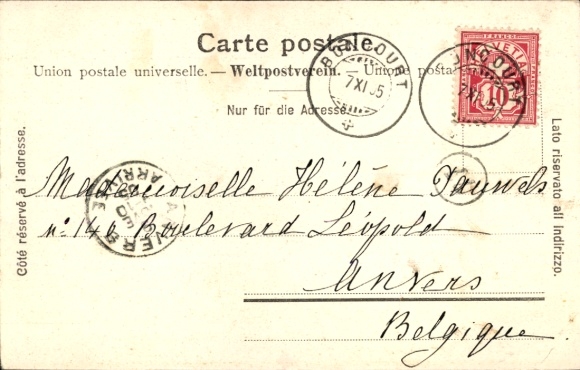 Carte postale.
Union postale universelle. — Weltpostverein. — Union postale
Nur für die Adresse.
BONCOURT
7 XI 05
FRANCO
HELVETIA
10
Côté réservé à l'adresse.
Lato riservato all indirizzo.
Mademoiselle Hélène Pauwels
n: 140 Boulevard Léopold
Anvers
Belgique.